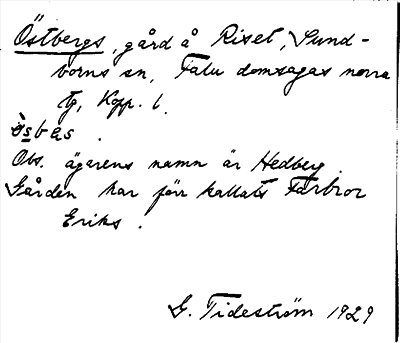 Östbergs, gård å Riset, Sund-
borns sn, Falu domsagas norra
tg, Kopp. l.
ɵ̀sbas.
Obs. ägarens namn är Hedberg.
Gården har förr kallats Farbror
Eriks.
G. Tideström 1929